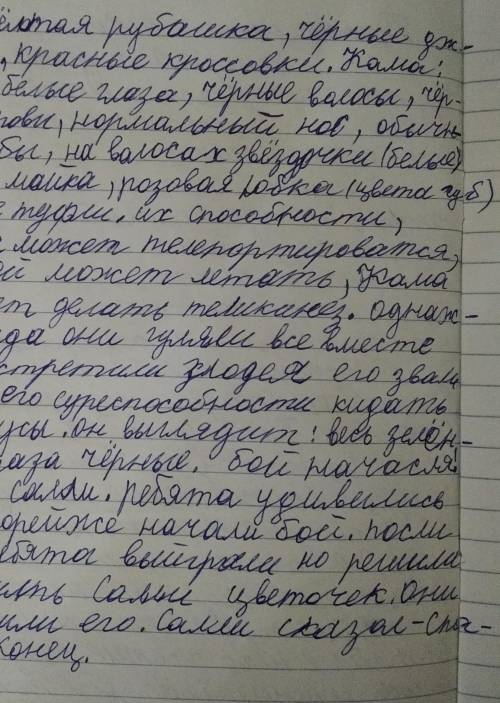 ёлтая рубашка, чёрные дж-
, красные кроссовки. Кама:
белые глаза, чёрные волосы, чёр-
рови, нормальный нос, обычн
бы, на волосах звёздочки (белые)
майка, розовая юбка (цвета губ)
е туфли. их способности,
может телепортироватся,
ей может летать, Кама
ет делать теликинез. однаж-
да они гуляли все вместе
стретили злодея его звали
его суреспособности кидать
усы. он выглядит: весь зелён-
лаза чёрные. бой начасля.
салли. ребята удивились
орейже начали бой. посли
ебята выйграли но решили
ить Салли цветочек. они
или его. Салли сказал-спас-
конец.